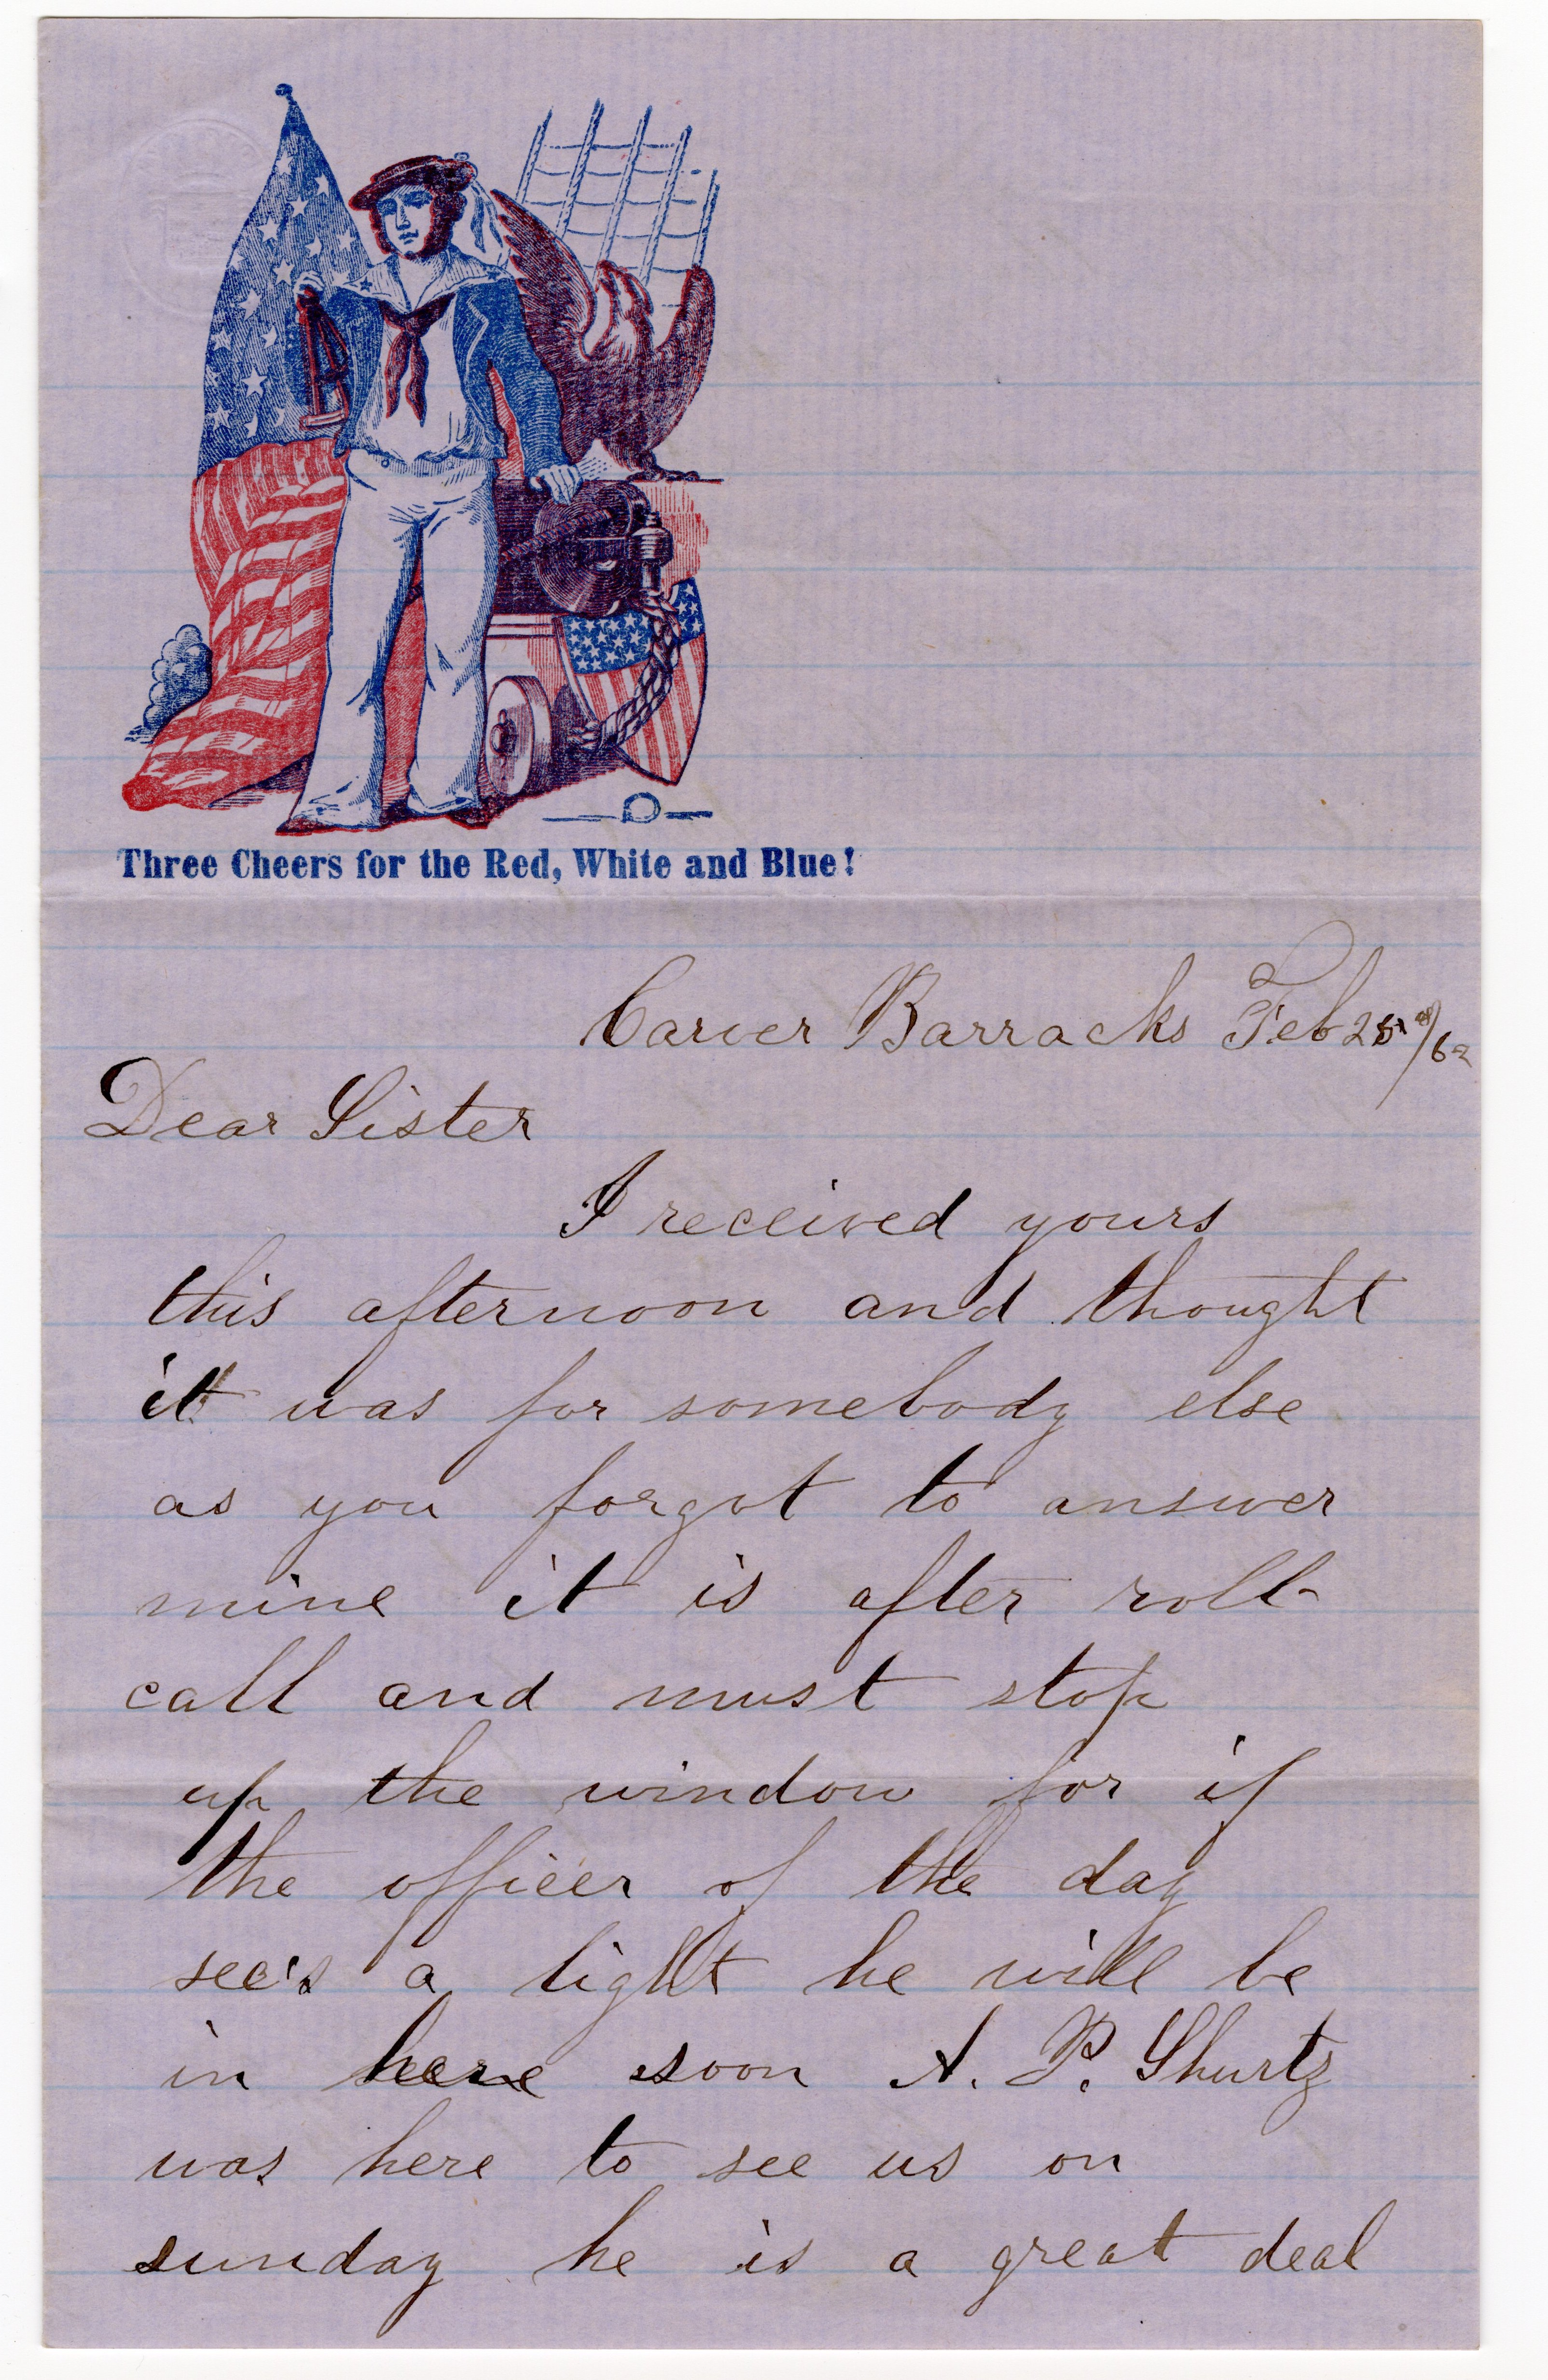 Three Cheers for the Red, White and Blue!
Carver Barracks Feb 25th/62
Dear Sister
I received yours
this afternoon and thought
it was for somebody else
as you forgot to answer
mine it is after roll-
call and must stop
up the window for if
the officer of the day
see's a light he will be
in here soon A. P. Shurtz
was here to see us on
sunday he is a great deal